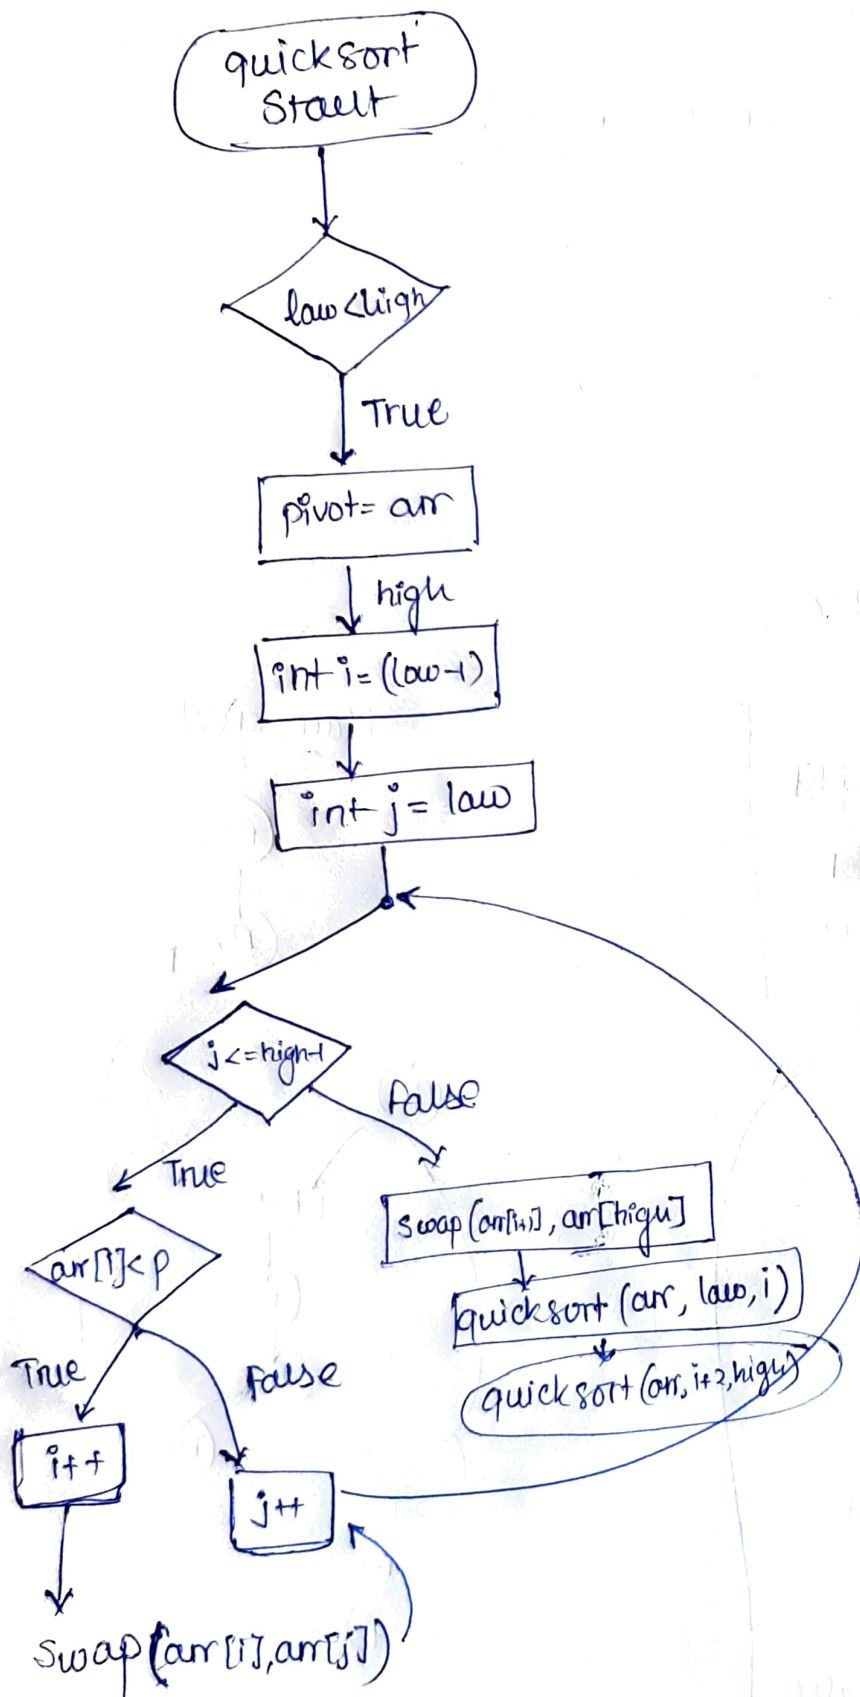 quicksort
Start
low<high
True
pivot= arr
high
int i=(low-1)
int j= low
j<=high-1
False
True
swap(arr[i+1], arr[high]
arr[i]<p
quicksort (arr, low, i)
True
False
quicksort(arr, i+2, high)
i++
j++
swap(arr[i], arr[j])